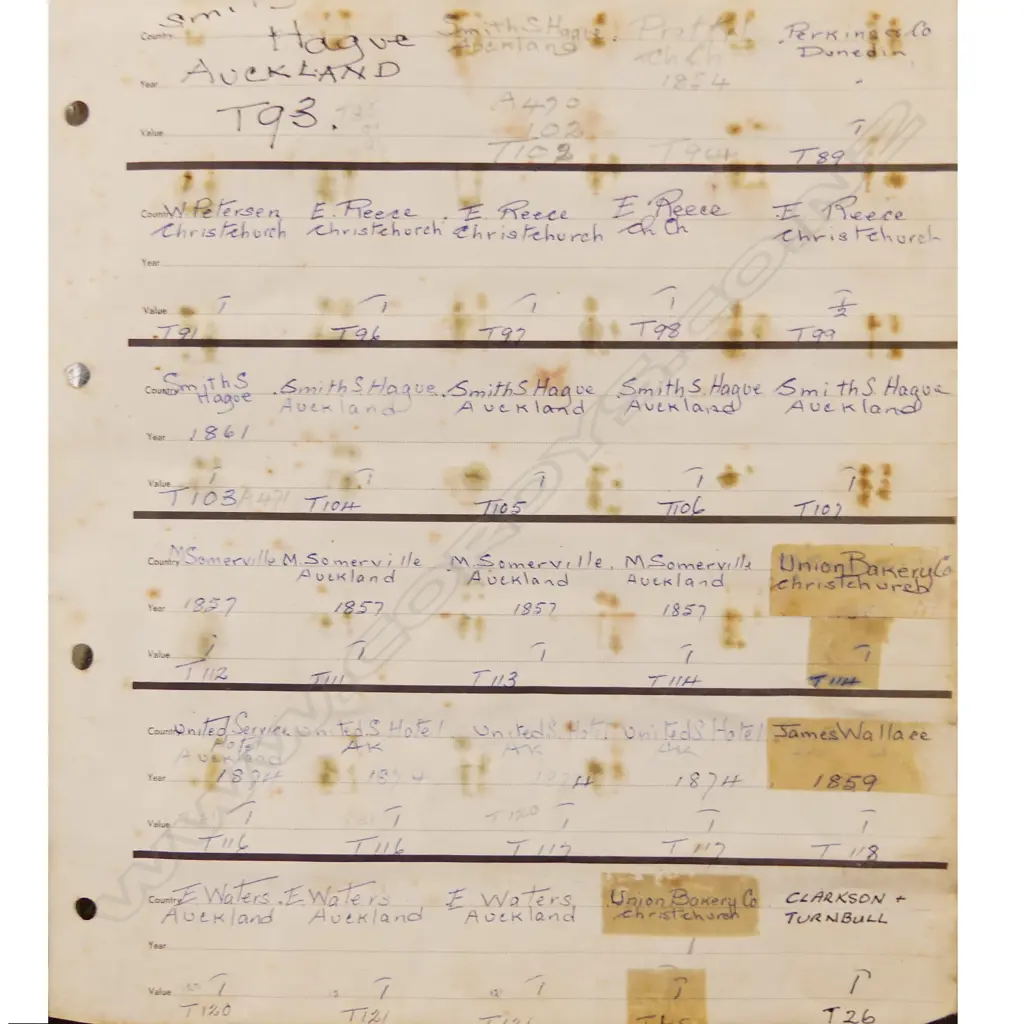 Country Smith S
Hague
Year AUCKLAND
Value T93.
Smith S Hague
Auckland
A470
102
T102
Pratt
ChCh
1854
T94
Perkins & Co
Dunedin
1
T89
Country W. Petersen E. Reece E. Reece E Reece E Reece
Christchurch Christchurch Christchurch Ch Ch Christchurch
Year
Value 1 1 1 1 1/2
T91 T96 T97 T98 T99
Country Smith S Smith S. Hague Smith S. Hague Smith S. Hague Smith S. Hague
Hague Auckland Auckland Auckland Auckland
Year 1861
Value 1 1 1 1 1
T103 A471 T104 T105 T106 T107
Country M Somerville M. Somerville M. Somerville M Somerville Union Bakery Co
Auckland Auckland Auckland Christchurch
Year 1857 1857 1857 1857
Value 1 1 1 1 1
T112 T111 T113 T114 T114
Country United Service United S Hotel United S. Hotel United S Hotel James Wallace
Auckland AK AK AK
Year 1874 1874 1874 1874 1859
T120
Value 1 1 1 1 1
T116 T116 T117 T117 T118
Country E Waters E Waters E Waters Union Bakery Co CLARKSON +
Auckland Auckland Auckland Christchurch TURNBULL
Year 1
Value 1 1 1 1 1
T120 T121 T121 T26